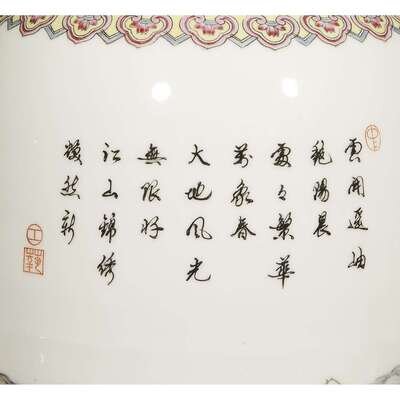 雲開遠岫
艷陽晨
處々繁華
萬象春
大地風光
無限好
江山錦綉
煥然新